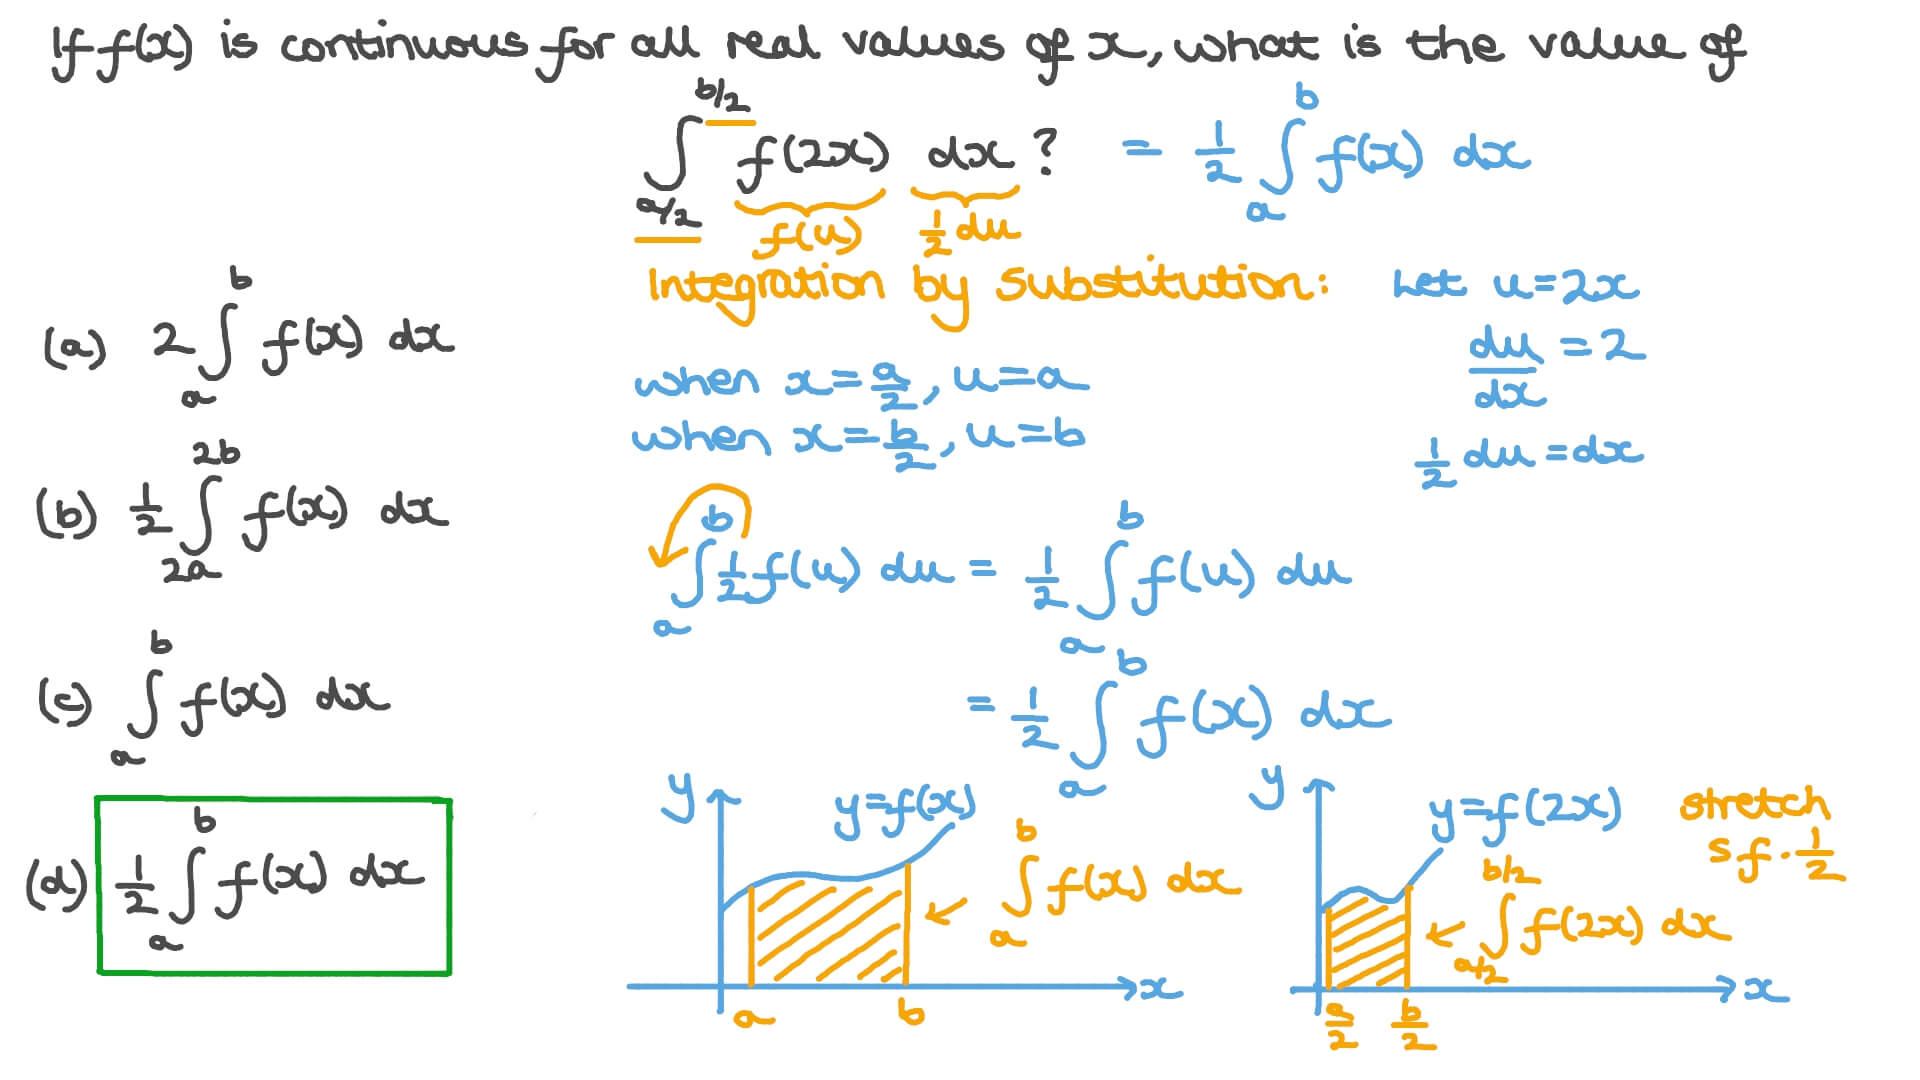 If f(x) is continuous for all real values of x, what is the value of
∫_{a/2}^{b/2} f(2x) dx? = 1/2 ∫_a^b f(x) dx
f(u) 1/2 du
Integration by substitution: Let u=2x
du/dx = 2
1/2 du = dx
when x = a/2, u = a
when x = b/2, u = b
∫_a^b 1/2 f(u) du = 1/2 ∫_a^b f(u) du
= 1/2 ∫_a^b f(x) dx
(a) 2 ∫_a^b f(x) dx
(b) 1/2 ∫_{2a}^{2b} f(x) dx
(c) ∫_a^b f(x) dx
(d) 1/2 ∫_a^b f(x) dx
y
y=f(x)
∫_a^b f(x) dx
x
a b
y
y=f(2x)
stretch
sf. 1/2
∫_{a/2}^{b/2} f(2x) dx
x
a/2 b/2